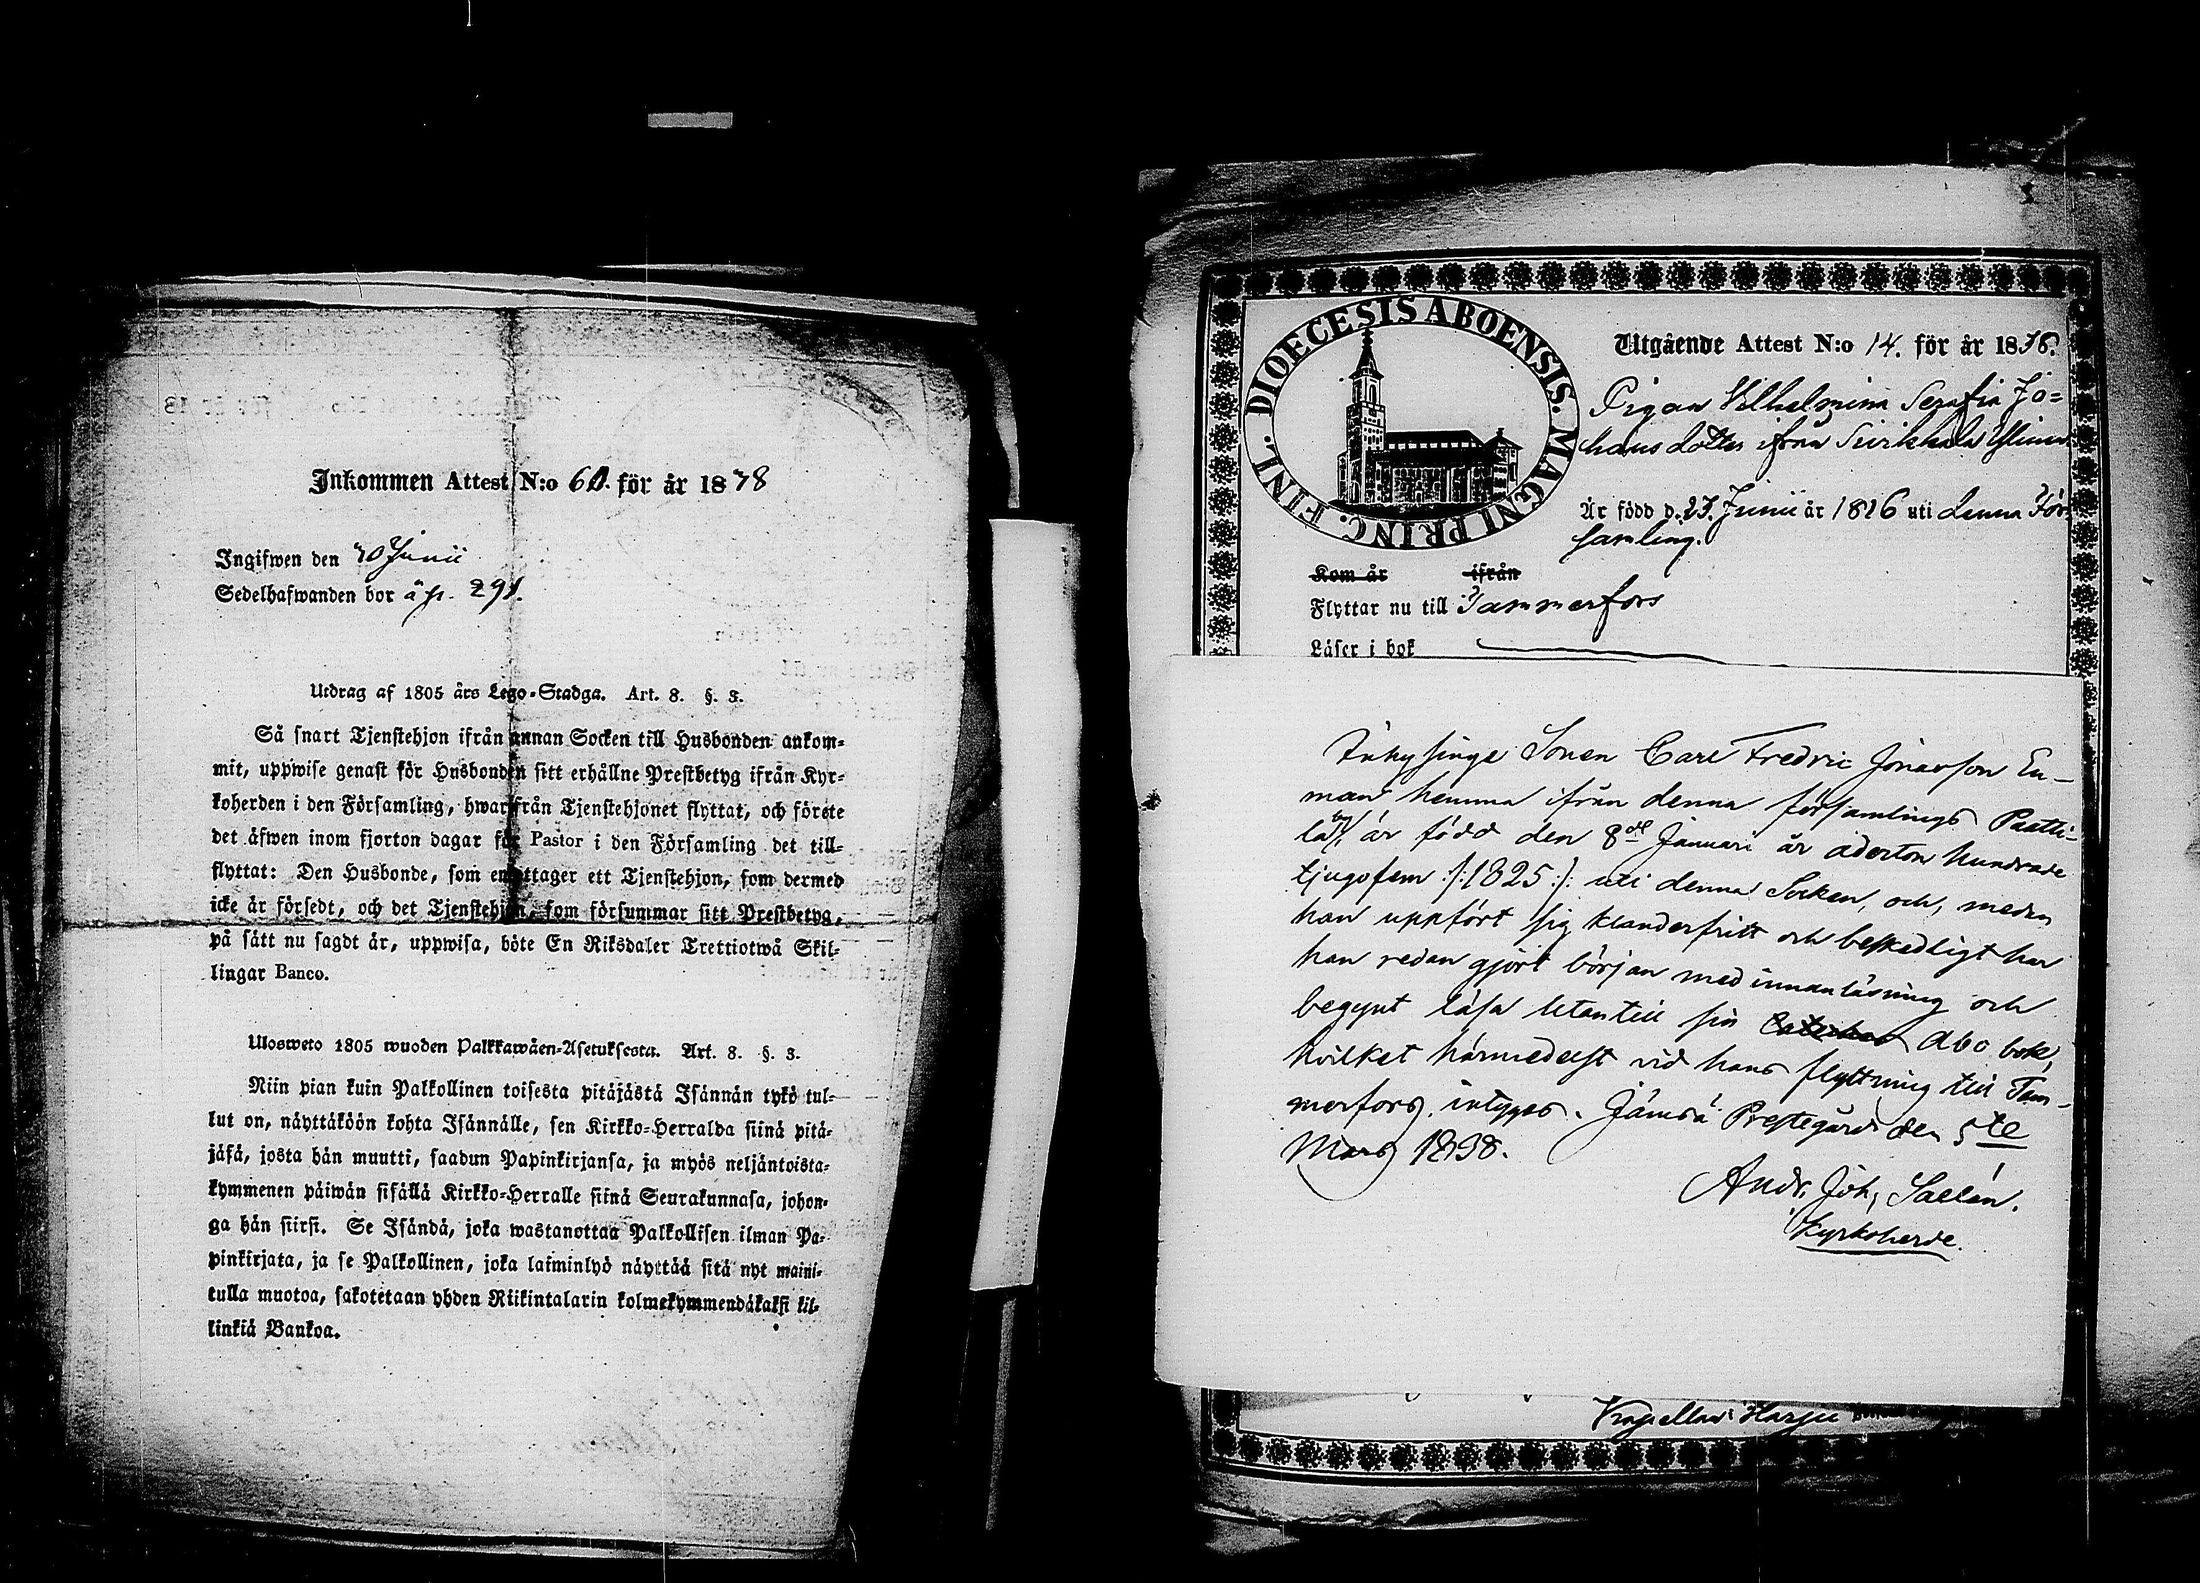 Inkommen Attest N:o 60. för år 1838
Ingifwen den 30 Junii
Sedelhafwanden bor å p. 291.
Utdrag af 1805 års Lego-Stadga. Art. 8. §. 3.
Så snart Tjenstehjon ifrån annan Socken till Husbonden ankom-
mit, uppwise genast för Husbonden sitt erhållne Prestbetyg ifrån Kyr-
koherden i den Församling, hwarifrån Tjenstehjonet flyttat, och förete
det äfwen inom fjorton dagar för Pastor i den Församling det till-
flyttat: Den Husbonde, som emottager ett Tjenstehjon, som dermed
icke är försedt, och det Tjenstehjon, som försummar sitt Prestbetyg,
på sätt nu sagdt är, uppwisa, böte En Riksdaler Trettiotwå Skil-
lingar Banco.
Ulosweto 1805 wuoden Palkkawäen-Asetuksesta. Art. 8. §. 3.
Niin pian kuin Palkollinen toisesta pitäjästä Isännän tykö tul-
lut on, näyttäköön kohta Isännälle, sen Kirkko-Herralda siinä pitä-
jäsä, josta hän muutti, saadun Papinkirjansa, ja myös neljäntoista-
kymmenen päiwän sisällä Kirkko-Herralle siinä Seurakunnasa, johon-
ga hän siirsi. Se Isändä, joka wastanottaa Palkollisen ilman Pa-
pinkirjata, ja se Palkollinen, joka laiminlyö näyttää sitä nyt maini-
tulla muotoa, sakotetaan yhden Riikintalarin kolmekymmendäkaksi kil-
linkiä Bankoa.
DIOECESIS ABOENSIS. MAGNI PRINC. FINL.
Utgående Attest N:o 14. för år 1838.
Pigan Vilhelmina Serafia Jo=
hansdotter ifrån Siirikkala
Är född d. 23. Junii år 1816 uti denna För-
samling.
Kom år ifrån
Flyttar nu till Tammerfors
Läser i bok
Inhysinge Sonen Carl Fredric Jonasson En-
man hemma ifrån denna församlings Partti-
la by, är född den 8de Januari år aderton hundrade
tjugofem /:1825:/ uti denna Socken, och, medan
han uppfört sig klanderfritt och beskedligt har
han redan gjort början med innanläsning och
begynt läsa utantill sin Abo bok,
hvilket härmedelst vid hans flyttning till Tam-
merfors, intygas. Jämsä Prestegård den 5te
Mars 1838.
Andr. Joh. Sallén.
Kyrkoherde.
Kapellan i Harju